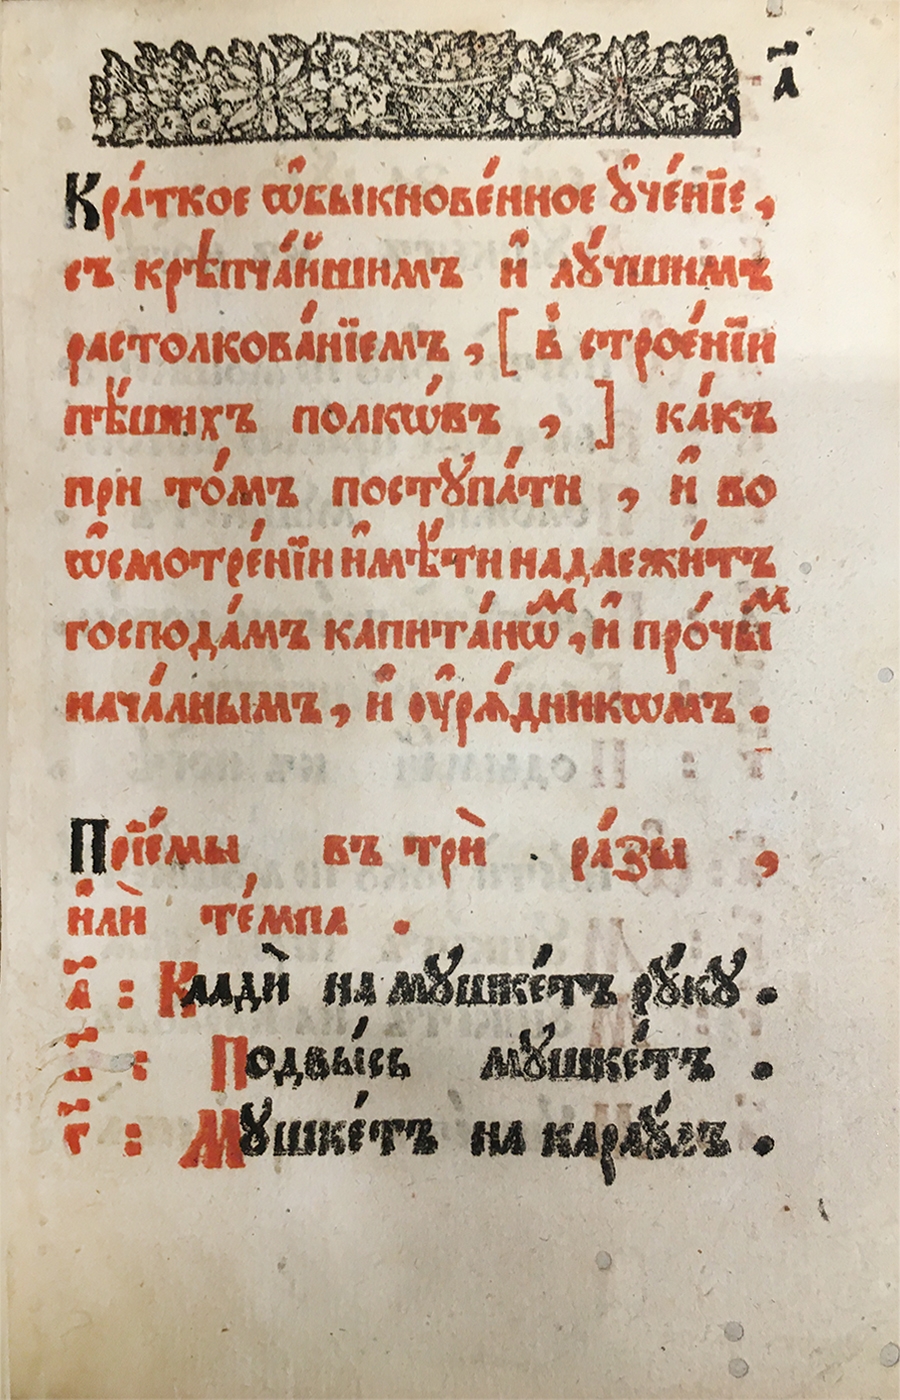 а҃
Кра́ткое ѡ҆быкнове́нное ᲂу҆че́нїе,
съ крѣпча́йшимъ и҆ лꙋ́чшимъ
растолкова́нїемъ, [ в҆ строе́нїи
пѣ́шихъ полкѡ́въ, ] ка́къ
при то́мъ постꙋпа́ти, и҆ во
ѡ҆смотре́нїи и҆мѣ́ти надлежи́тъ
господа́мъ капита́нѡⷨ, и҆ про́чыⷨ
нача́лнымъ, и҆ ᲂу҆рѧ́дникѡмъ.
Прїе́мы въ трѝ . ра́зы,
и҆лѝ те́мпа.
а҃ : Кладѝ на мꙋшке́тъ рꙋ́кꙋ.
в҃ : Подвы́сь мꙋшке́тъ.
г҃ : Мꙋшке́тъ на караꙋ́лъ.